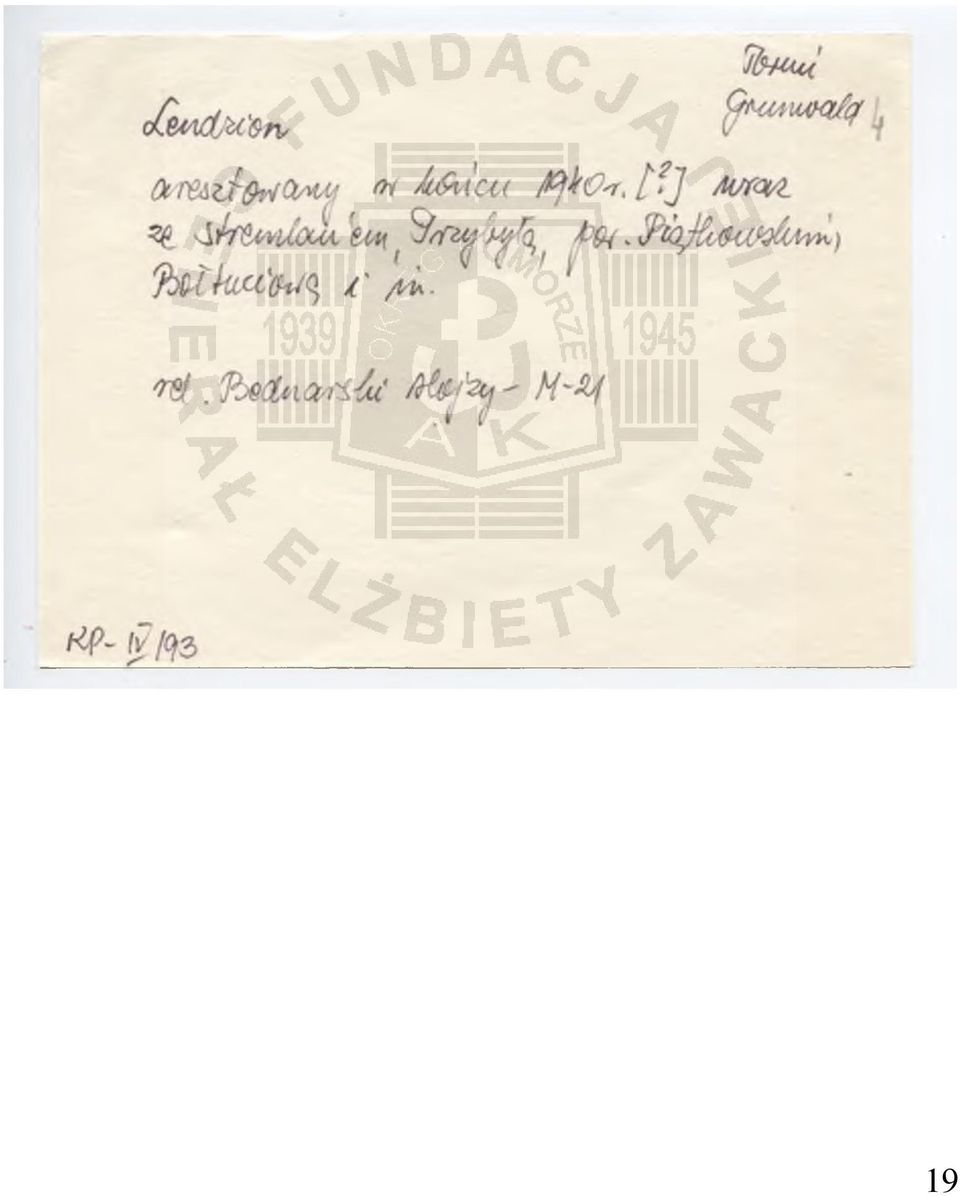 Toruń
Grunwald 4
Lendzion
aresztowany w końcu 1940 r. [?] wraz
ze Stremlau'em, Przybyłą, por. Piątkowskim,
Bołtuciową i in.
rel. Bednarski Alojzy - M-21
KP- IV/93
FUNDACJA GENERAŁ ELŻBIETY ZAWACKIEJ
OKRĘG POMORZE
1939
1945
AK
19